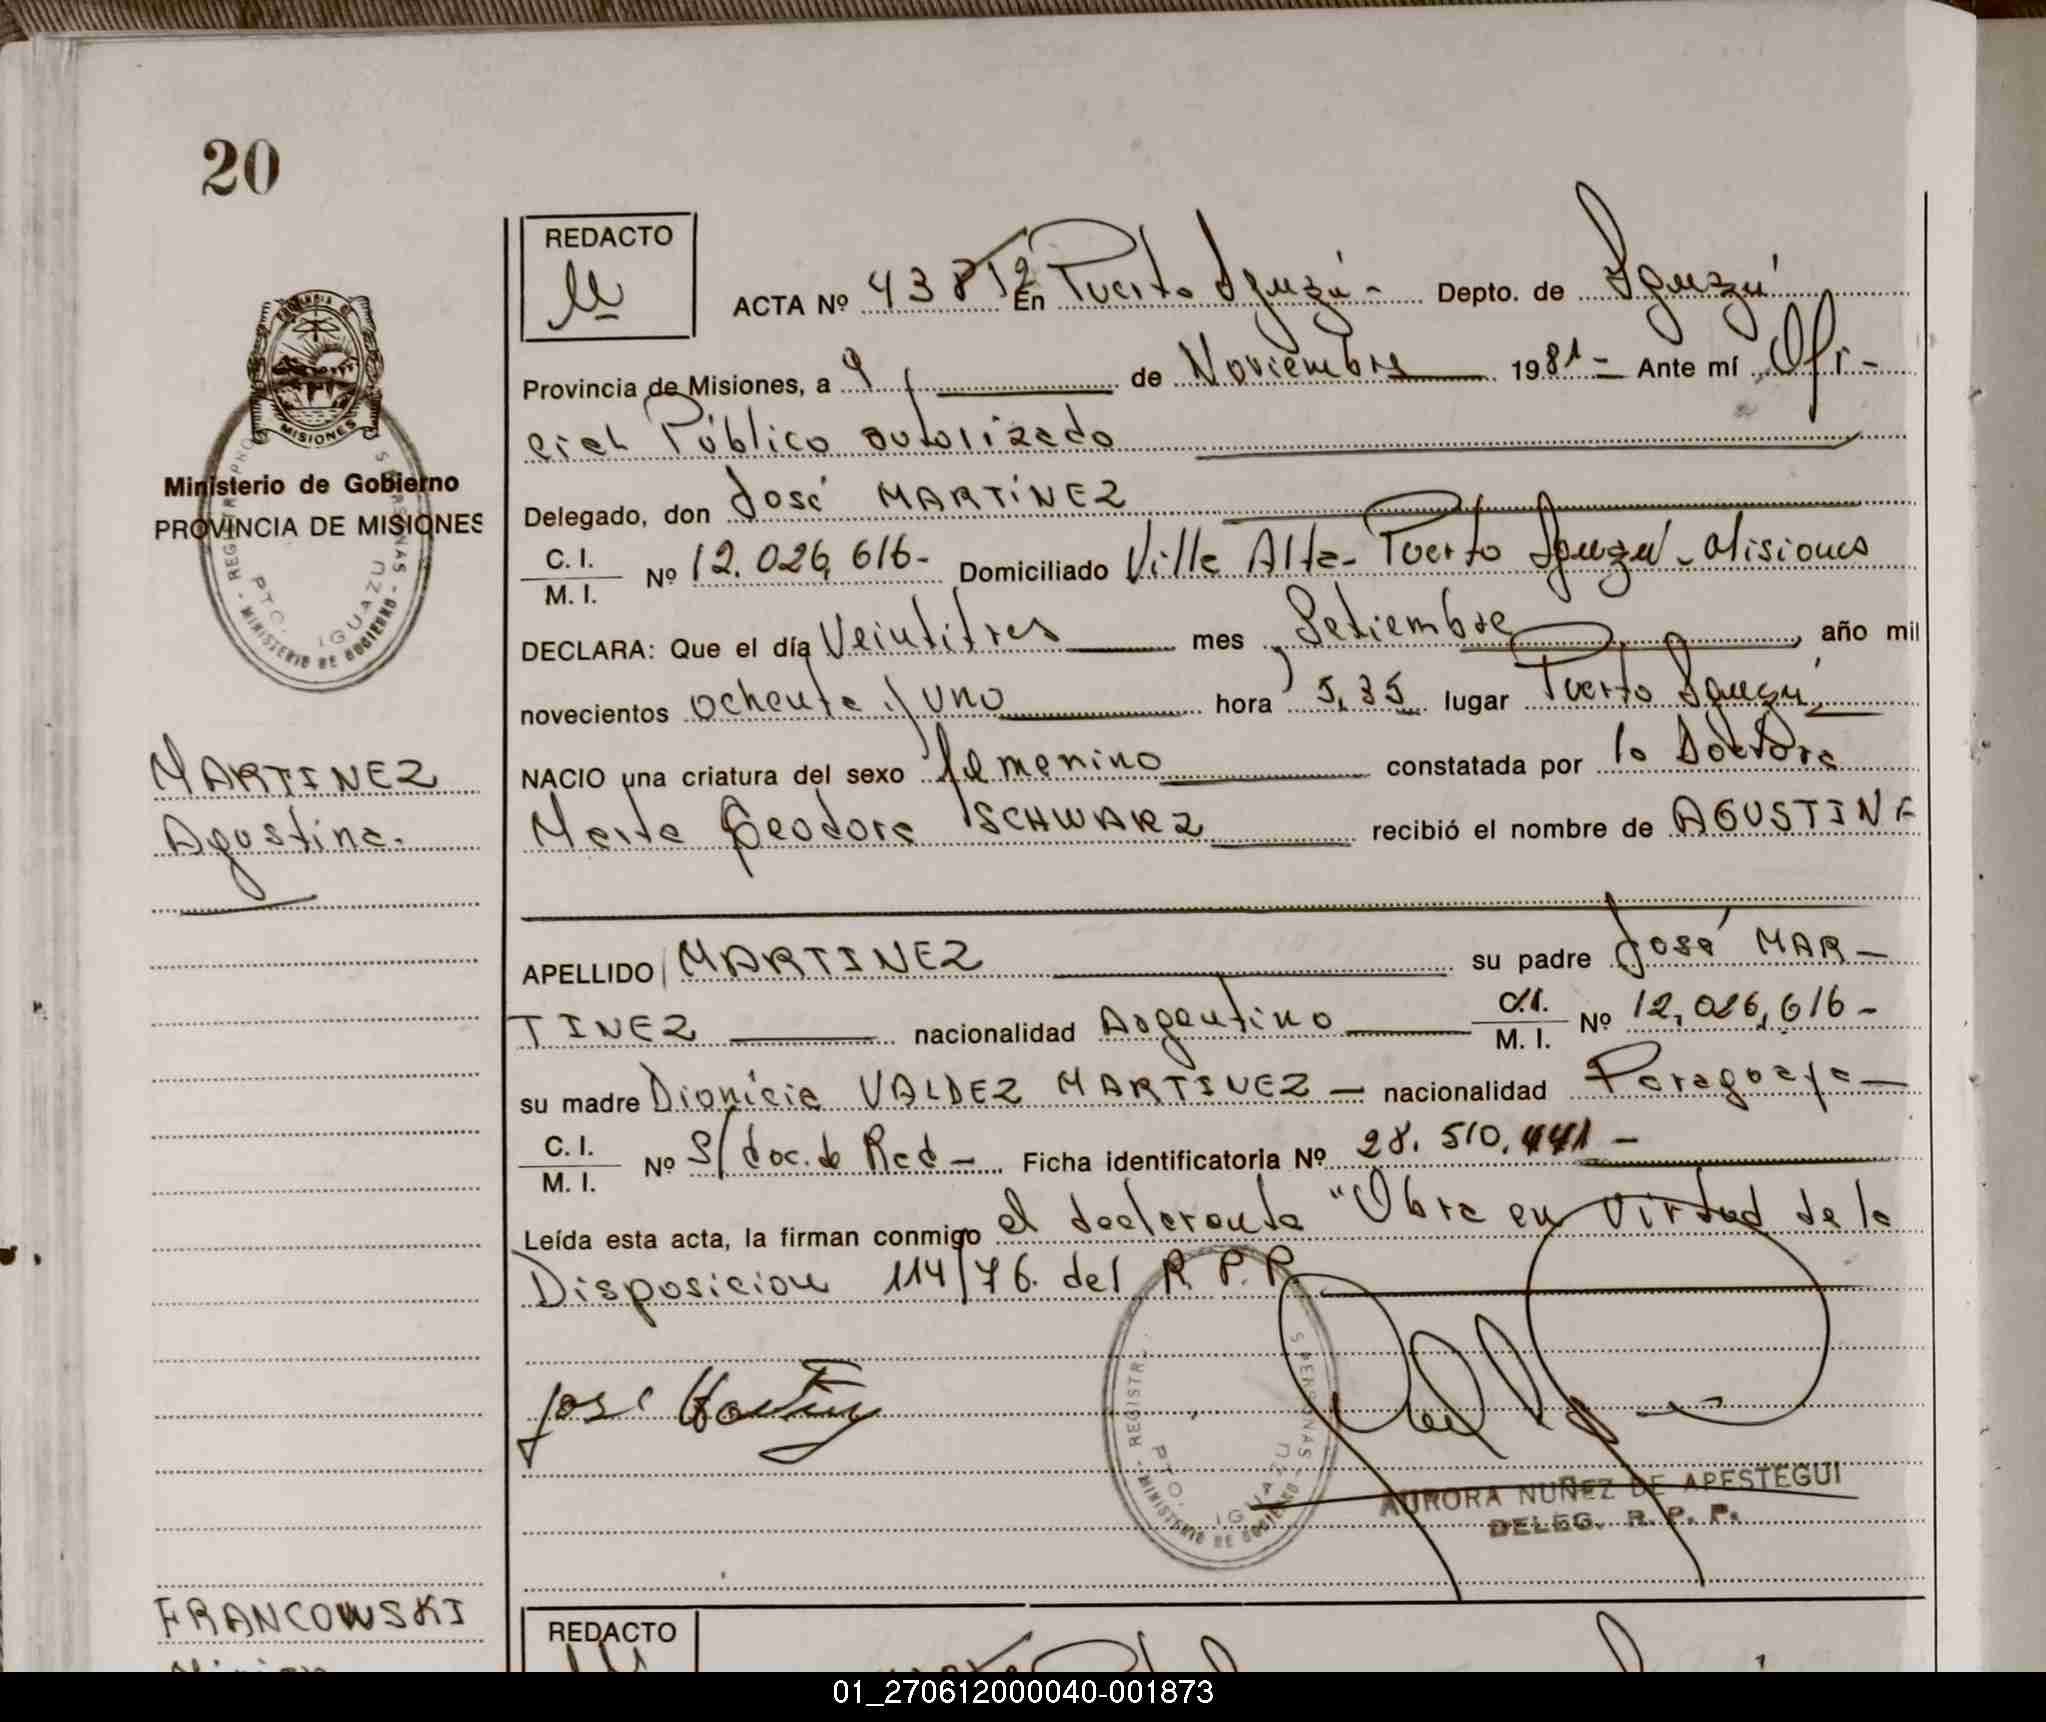 20
REDACTO
ACTA Nº 438 12 En Puerto Iguazú - Depto. de Iguazú
Provincia de Misiones, a 9 de Noviembre 1981 - Ante mí Ofi-
cial Público autorizado
Delegado, don José MARTÍNEZ
C. I. / M. I. Nº 12.026,616- Domiciliado Villa Alta- Puerto Iguazú - Misiones
DECLARA: Que el día Veintitres mes Setiembre, año mil
novecientos ochenta y uno hora 5,35 lugar Puerto Iguazú
NACIO una criatura del sexo femenino constatada por la Doctora
Marta Teodora SCHWARZ recibió el nombre de AGUSTINA
APELLIDO MARTINEZ su padre José MAR-
TINEZ nacionalidad Argentino C.I. / M. I. Nº 12,026,616-
su madre Dionicia VALDEZ MARTINEZ - nacionalidad Paraguaya-
C. I. / M. I. Nº S/doc. de Rad- Ficha identificatoria Nº 28.510.441-
Leída esta acta, la firman conmigo el declarante "Obra en virtud de la
Disposicion 114/76. del R.P.P.
José Martinez
AURORA NUÑEZ DE APESTEGUI
DELEG. R. P. P.
REGISTR PERSONAS
MINISTERIO DE GOBIERNO
PTO. IGUAZU
PROVINCIA D MISIONES
Ministerio de Gobierno
PROVINCIA DE MISIONES
REGISTR PRO S PERSONAS
MINISTERIO DE GOBIERNO
PTO. IGUAZU
MARTINEZ
Agustina.
FRANCOWSKI
REDACTO
01_270612000040-001873